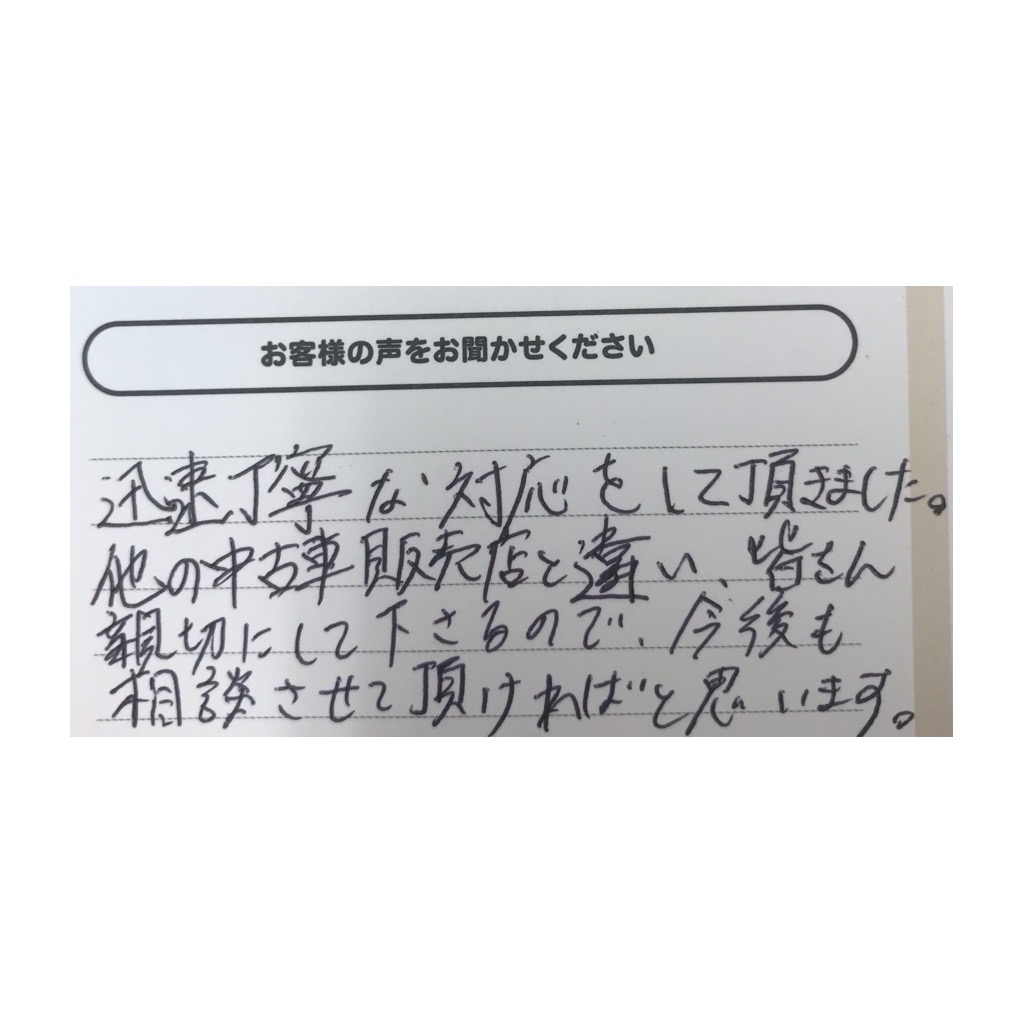 お客様の声をお聞かせください
迅速丁寧な対応をして頂きました。
他の中古車販売店と違い、皆さん
親切にして下さるので、今後も
相談させて頂ければと思います。